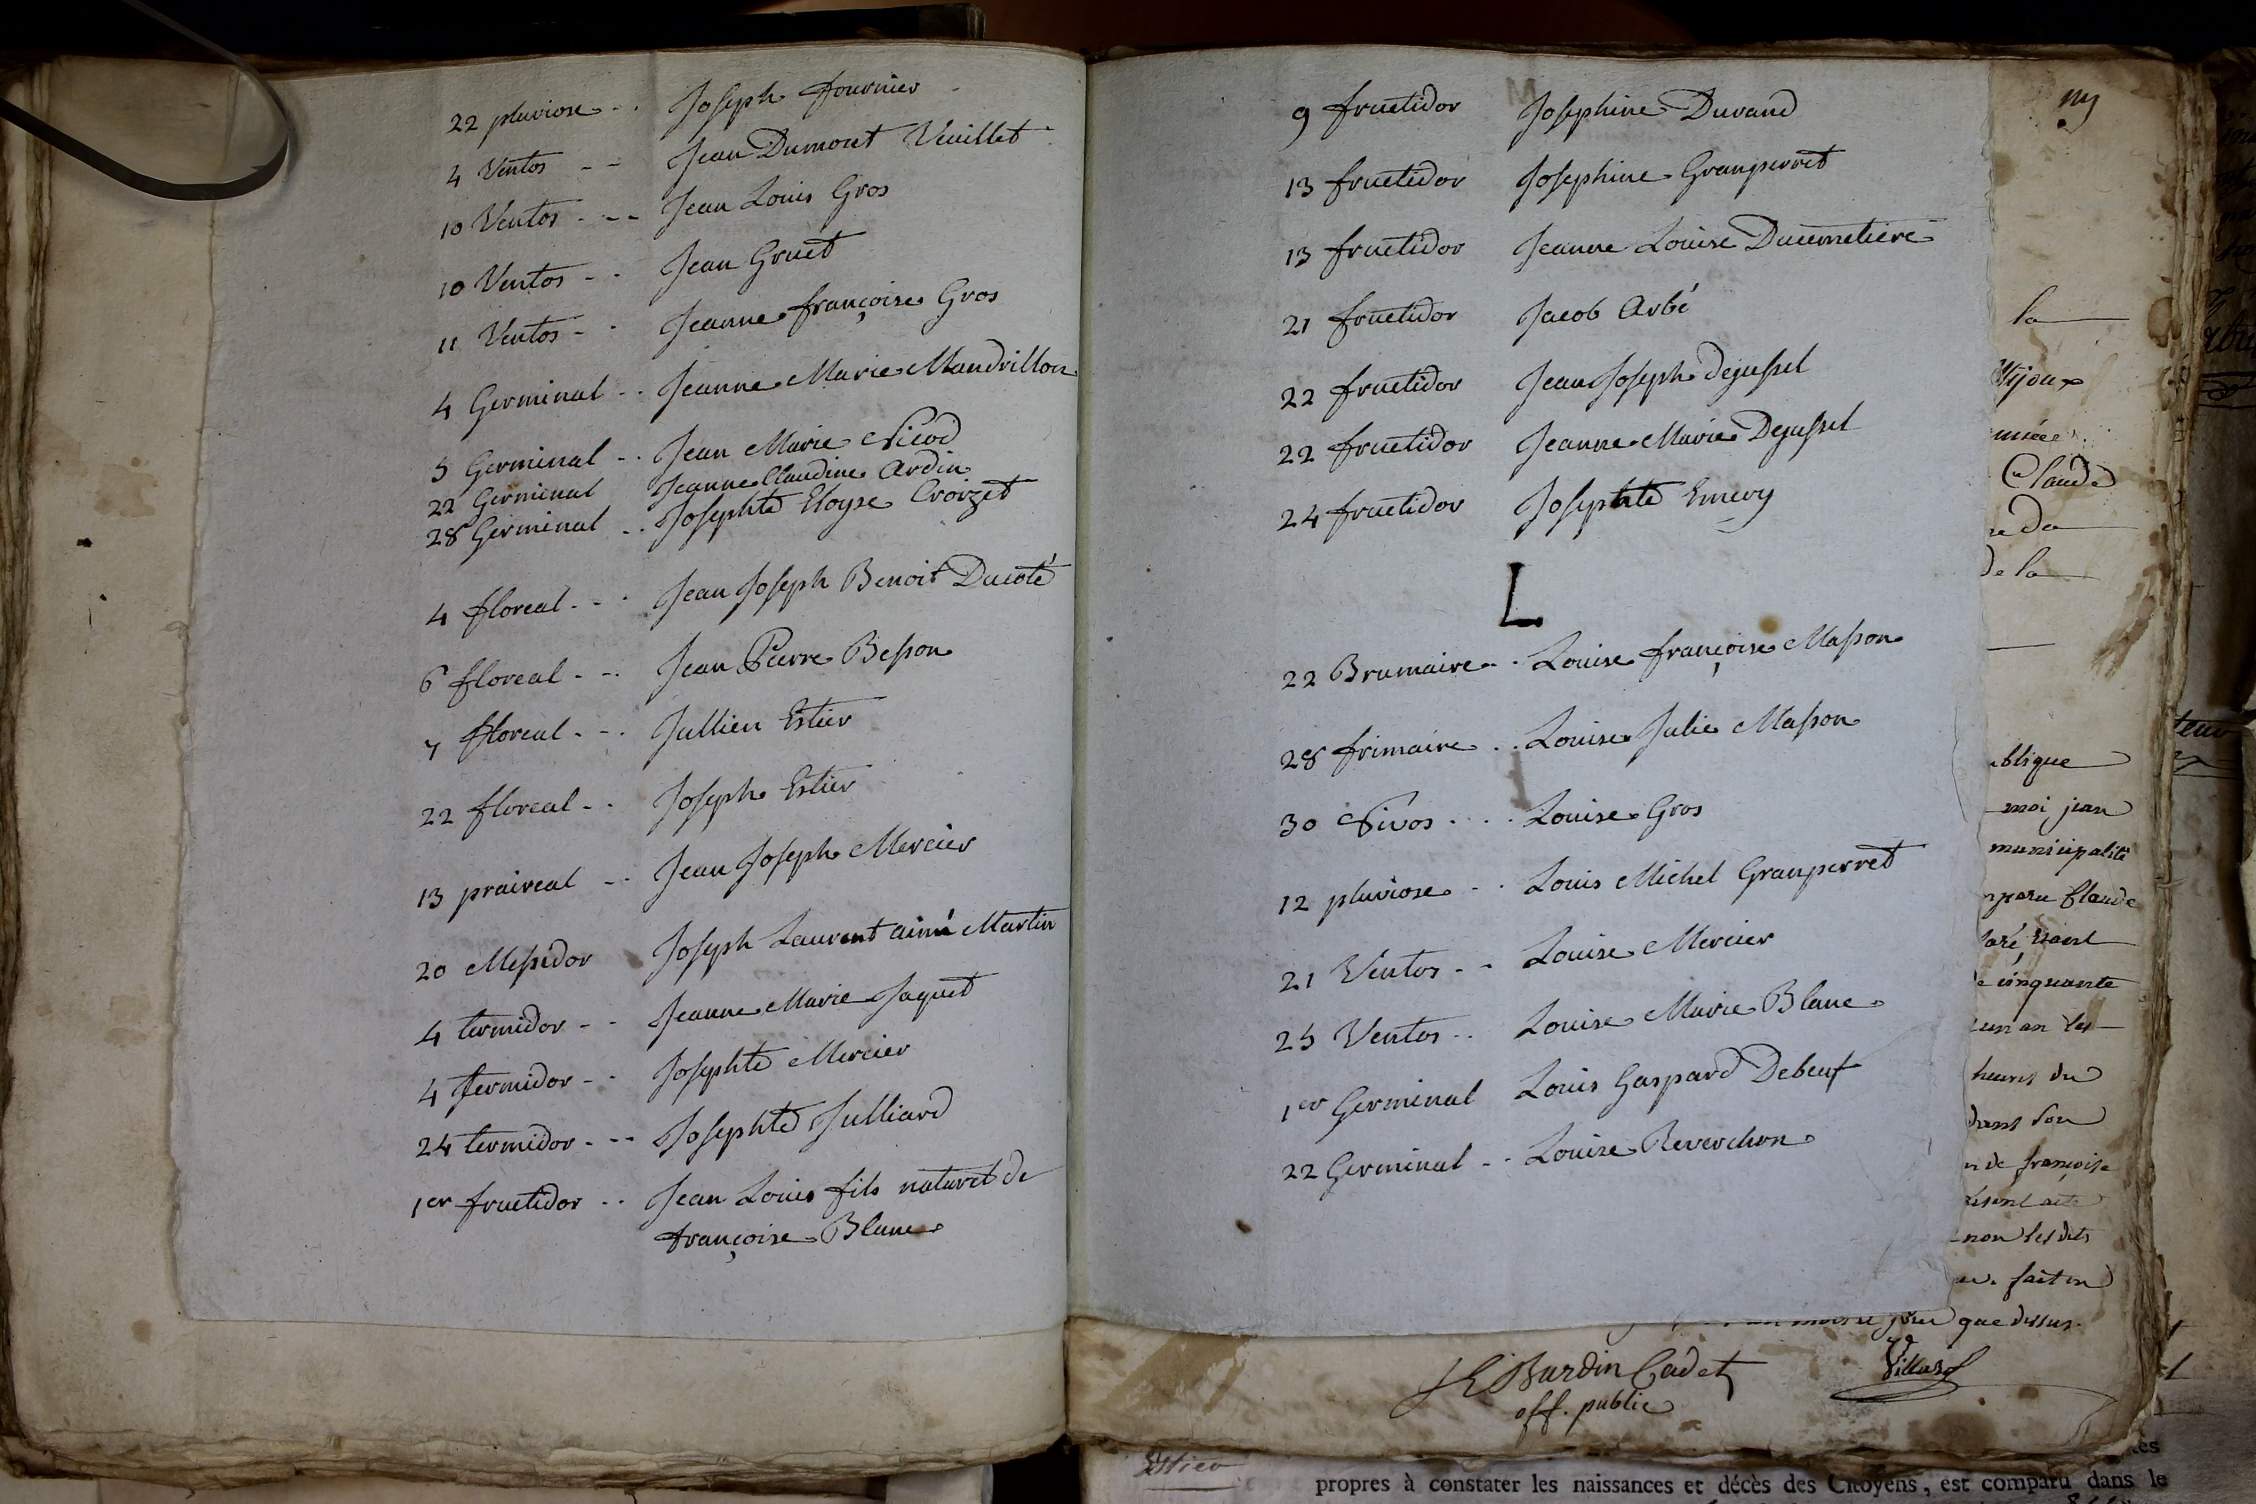 22 pluviose - . Joseph fournier
4 Ventos - - Jean Dumont Vuillet
10 Ventos - - - Jean Louis Gros
10 Ventos - - Jean Gruet
11 Ventos - . Jeanne françoise Gros
4 Germinal - . Jeanne Marie Mandrillon
5 Germinal - . Jean Marie Nicod
22 Germinal Jeanne Claudine Ardin
28 Germinal - . Josephte Eloyse Croizet
4 floreal - - . Jean Joseph Benoit Ducoté
6 floreal - - . Jean Pierre Besson
7 floreal - - . Jullien Estier
22 floreal - . Joseph Estier
13 praireal - . Jean Joseph Mercier
20 Messidor Joseph Laurent aimé Martin
4 termidor - - Jeanne Marie Jaquet
4 termidor - . Josephte Mercier
24 termidor - - - Josephte Julliard
1er fructidor - . Jean Louis fils naturel de
françoise Blanc
9 fructidor Josephine Durand
13 fructidor Josephine Granperret
13 fructidor Jeanne Louise Ducimetiere
21 fructidor Jacob Arbé
22 fructidor Jean Joseph Dejussel
22 fructidor Jeanne Marie Dejussel
24 fructidor Josephte Emery
L
22 Brumaire - . Louise françoise Masson
28 frimaire . . Louise Julie Masson
30 Nivos . . . Louise Gros
12 pluviose - . Louis Michel Granperret
21 Ventos - - Louise Mercier
25 Ventos . . Louise Marie Blanc
1er Germinal Louis Gaspard Debeuf
22 Germinal - . Louise Reverchon
la
Mijoux
Claude
de la
blique
moi jean
municipalité
Claude
cinquante
un an les
heures du
dans son
de françoise
non lesdits
fait en
jour que dessus.
Burdin Cadet
off. public
Estier
propres à constater les naissances et décès des Citoyens, est comparu dans le